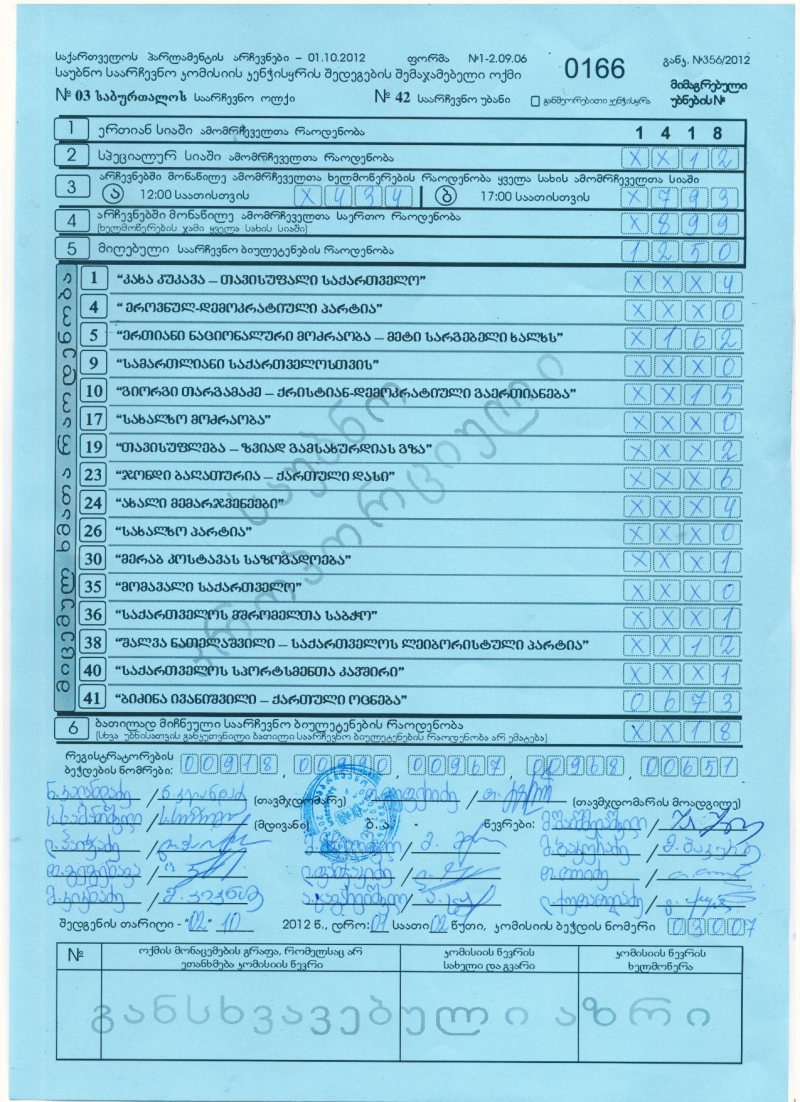 საქართველოს პარლამენტის არჩევნები – 01.10.2012 ფორმა №1-2.09.06 0166 განკ. №356/2012
საუბნო საარჩევნო კომისიის კენჭისყრის შედეგების შემაჯამებელი ოქმი მიმაგრებული
№ 03 საბურთალოს საარჩევნო ოლქი № 42 საარჩევნო უბანი განმეორებითი კენჭისყრა უბნების №
1 ერთიან სიაში ამომრჩეველთა რაოდენობა 1 4 1 8
2 სპეციალურ სიაში ამომრჩეველთა რაოდენობა X X 1 2
3 არჩევნებში მონაწილე ამომრჩეველთა ხელმოწერების რაოდენობა ყველა სახის ამომრჩეველთა სიაში
ა 12:00 საათისთვის X 4 3 4 ბ 17:00 საათისთვის X 7 9 3
4 არჩევნებში მონაწილე ამომრჩეველთა საერთო რაოდენობა X 8 9 9
(ხელმოწერების ჯამი ყველა სახის სიაში)
5 მიღებული საარჩევნო ბიულეტენების რაოდენობა 1 2 5 0
მიცემულ ხმათა რაოდენობა
1 “კახა კუკავა – თავისუფალი საქართველო” X X X 4
4 “ეროვნულ-დემოკრატიული პარტია” X X X 0
5 “ერთიანი ნაციონალური მოძრაობა – მეტი სარგებელი ხალხს” X 1 6 2
9 “სამართლიანი საქართველოსთვის” X X X 0
10 “გიორგი თარგამაძე – ქრისტიან-დემოკრატიული გაერთიანება” X X 1 5
17 “სახალხო მოძრაობა” X X X 0
19 “თავისუფლება – ზვიად გამსახურდიას გზა” X X X 2
23 “ჯონდი ბაღათურია – ქართული დასი” X X X 6
24 “ახალი მემარჯვენეები” X X X 4
26 “სახალხო პარტია” X X X 0
30 “მერაბ კოსტავას საზოგადოება” X X X 1
35 “მომავალი საქართველო” X X X 0
36 “საქართველოს მშრომელთა საბჭო” X X X 1
38 “შალვა ნათელაშვილი – საქართველოს ლეიბორისტული პარტია” X X 1 2
40 “საქართველოს სპორტსმენთა კავშირი” X X X 1
41 “ბიძინა ივანიშვილი – ქართული ოცნება” 0 6 7 3
საუბნო
პროპორციული
6 ბათილად მიჩნეული საარჩევნო ბიულეტენების რაოდენობა X X 1 8
(სხვა უბნისათვის განკუთვნილი ბათილი საარჩევნო ბიულეტენების რაოდენობა არ ემატება)
რეგისტრატორების
ბეჭდების ნომრები: 00918, 00967 00968, 00651
(თავმჯდომარე) (თავმჯდომარის მოადგილე)
(მდივანი) წევრები:
შედგენის თარიღი - “02” 10 2012 წ., დრო: 07 საათი 02 წუთი, კომისიის ბეჭდის ნომერი 03007
№ ოქმის მონაცემების გრაფა, რომელსაც არ ეთანხმება კომისიის წევრი კომისიის წევრის სახელი და გვარი კომისიის წევრის ხელმოწერა
განსხვავებული აზრი